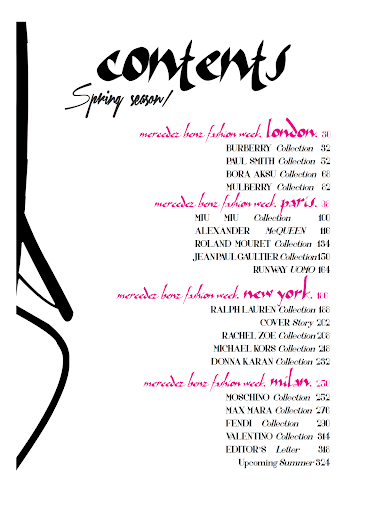 contents
Spring season/
mercedez benz fashion week. london. 30
BURBERRY Collection 32
PAUL SMITH Collection 52
BORA AKSU Collection 68
MULBERRY Collection 82
mercedez benz fashion week. paris.
MIU MIU Collection 100
ALEXANDER McQUEEN 116
ROLAND MOURET Collection 134
JEAN PAUL GAULTIER Collection 150
RUNWAY UOMO 164
mercedez benz fashion week. new york.
RALPH LAUREN Collection 188
COVER Story 202
RACHEL ZOE Collection 208
MICHAEL KORS Collection 218
DONNA KARAN Collection 232
mercedez benz fashion week. milan. 250
MOSCHINO Collection 252
MAX MARA Collection 276
FENDI Collection 290
VALENTINO Collection 314
EDITOR'S Letter 318
Upcoming Summer 324